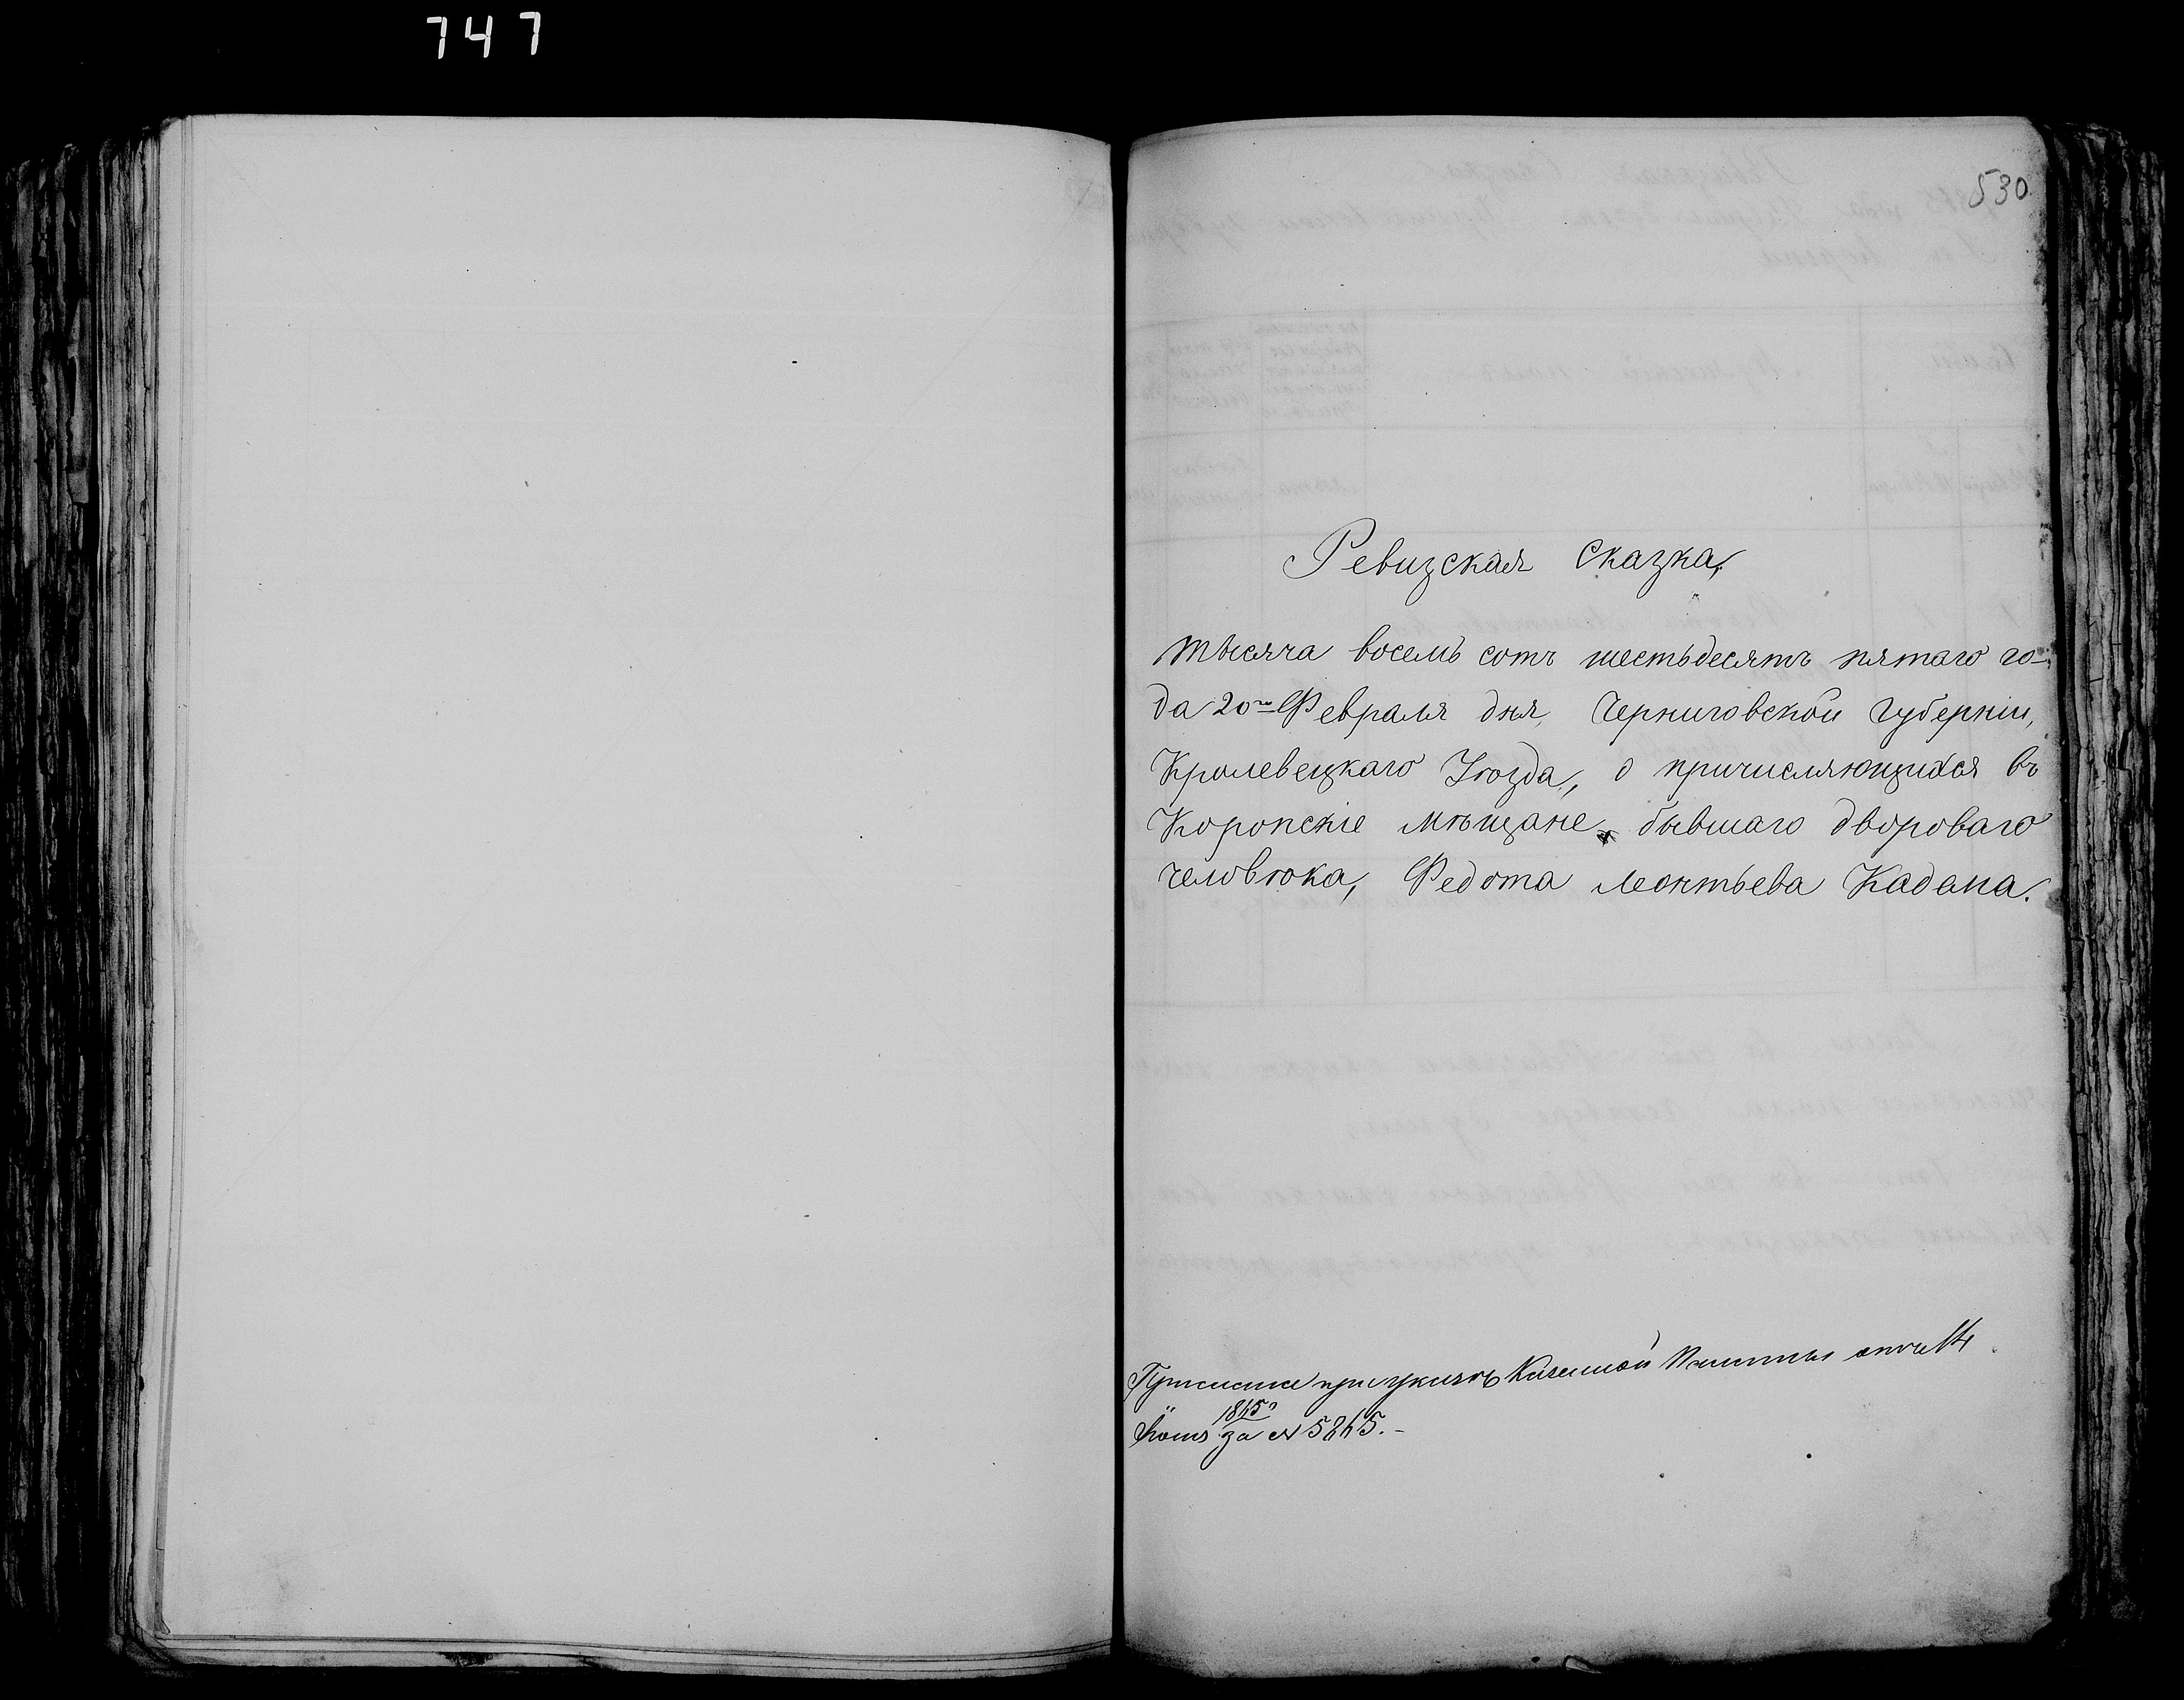 747
530
Ревизская сказка,
тысяча восемь сотъ шестьдесятъ пятаго го-
да 20го Февраля дня, Черниговской губерніи,
Кролевецкаго Уѣзда, о причисляющихся въ
Коропскіе мѣщане, бывшаго двороваго
человѣка, Федота Леонтьева Кадана.
при указѣ Казенной Палаты отъ 14
1865
за № 5865.-